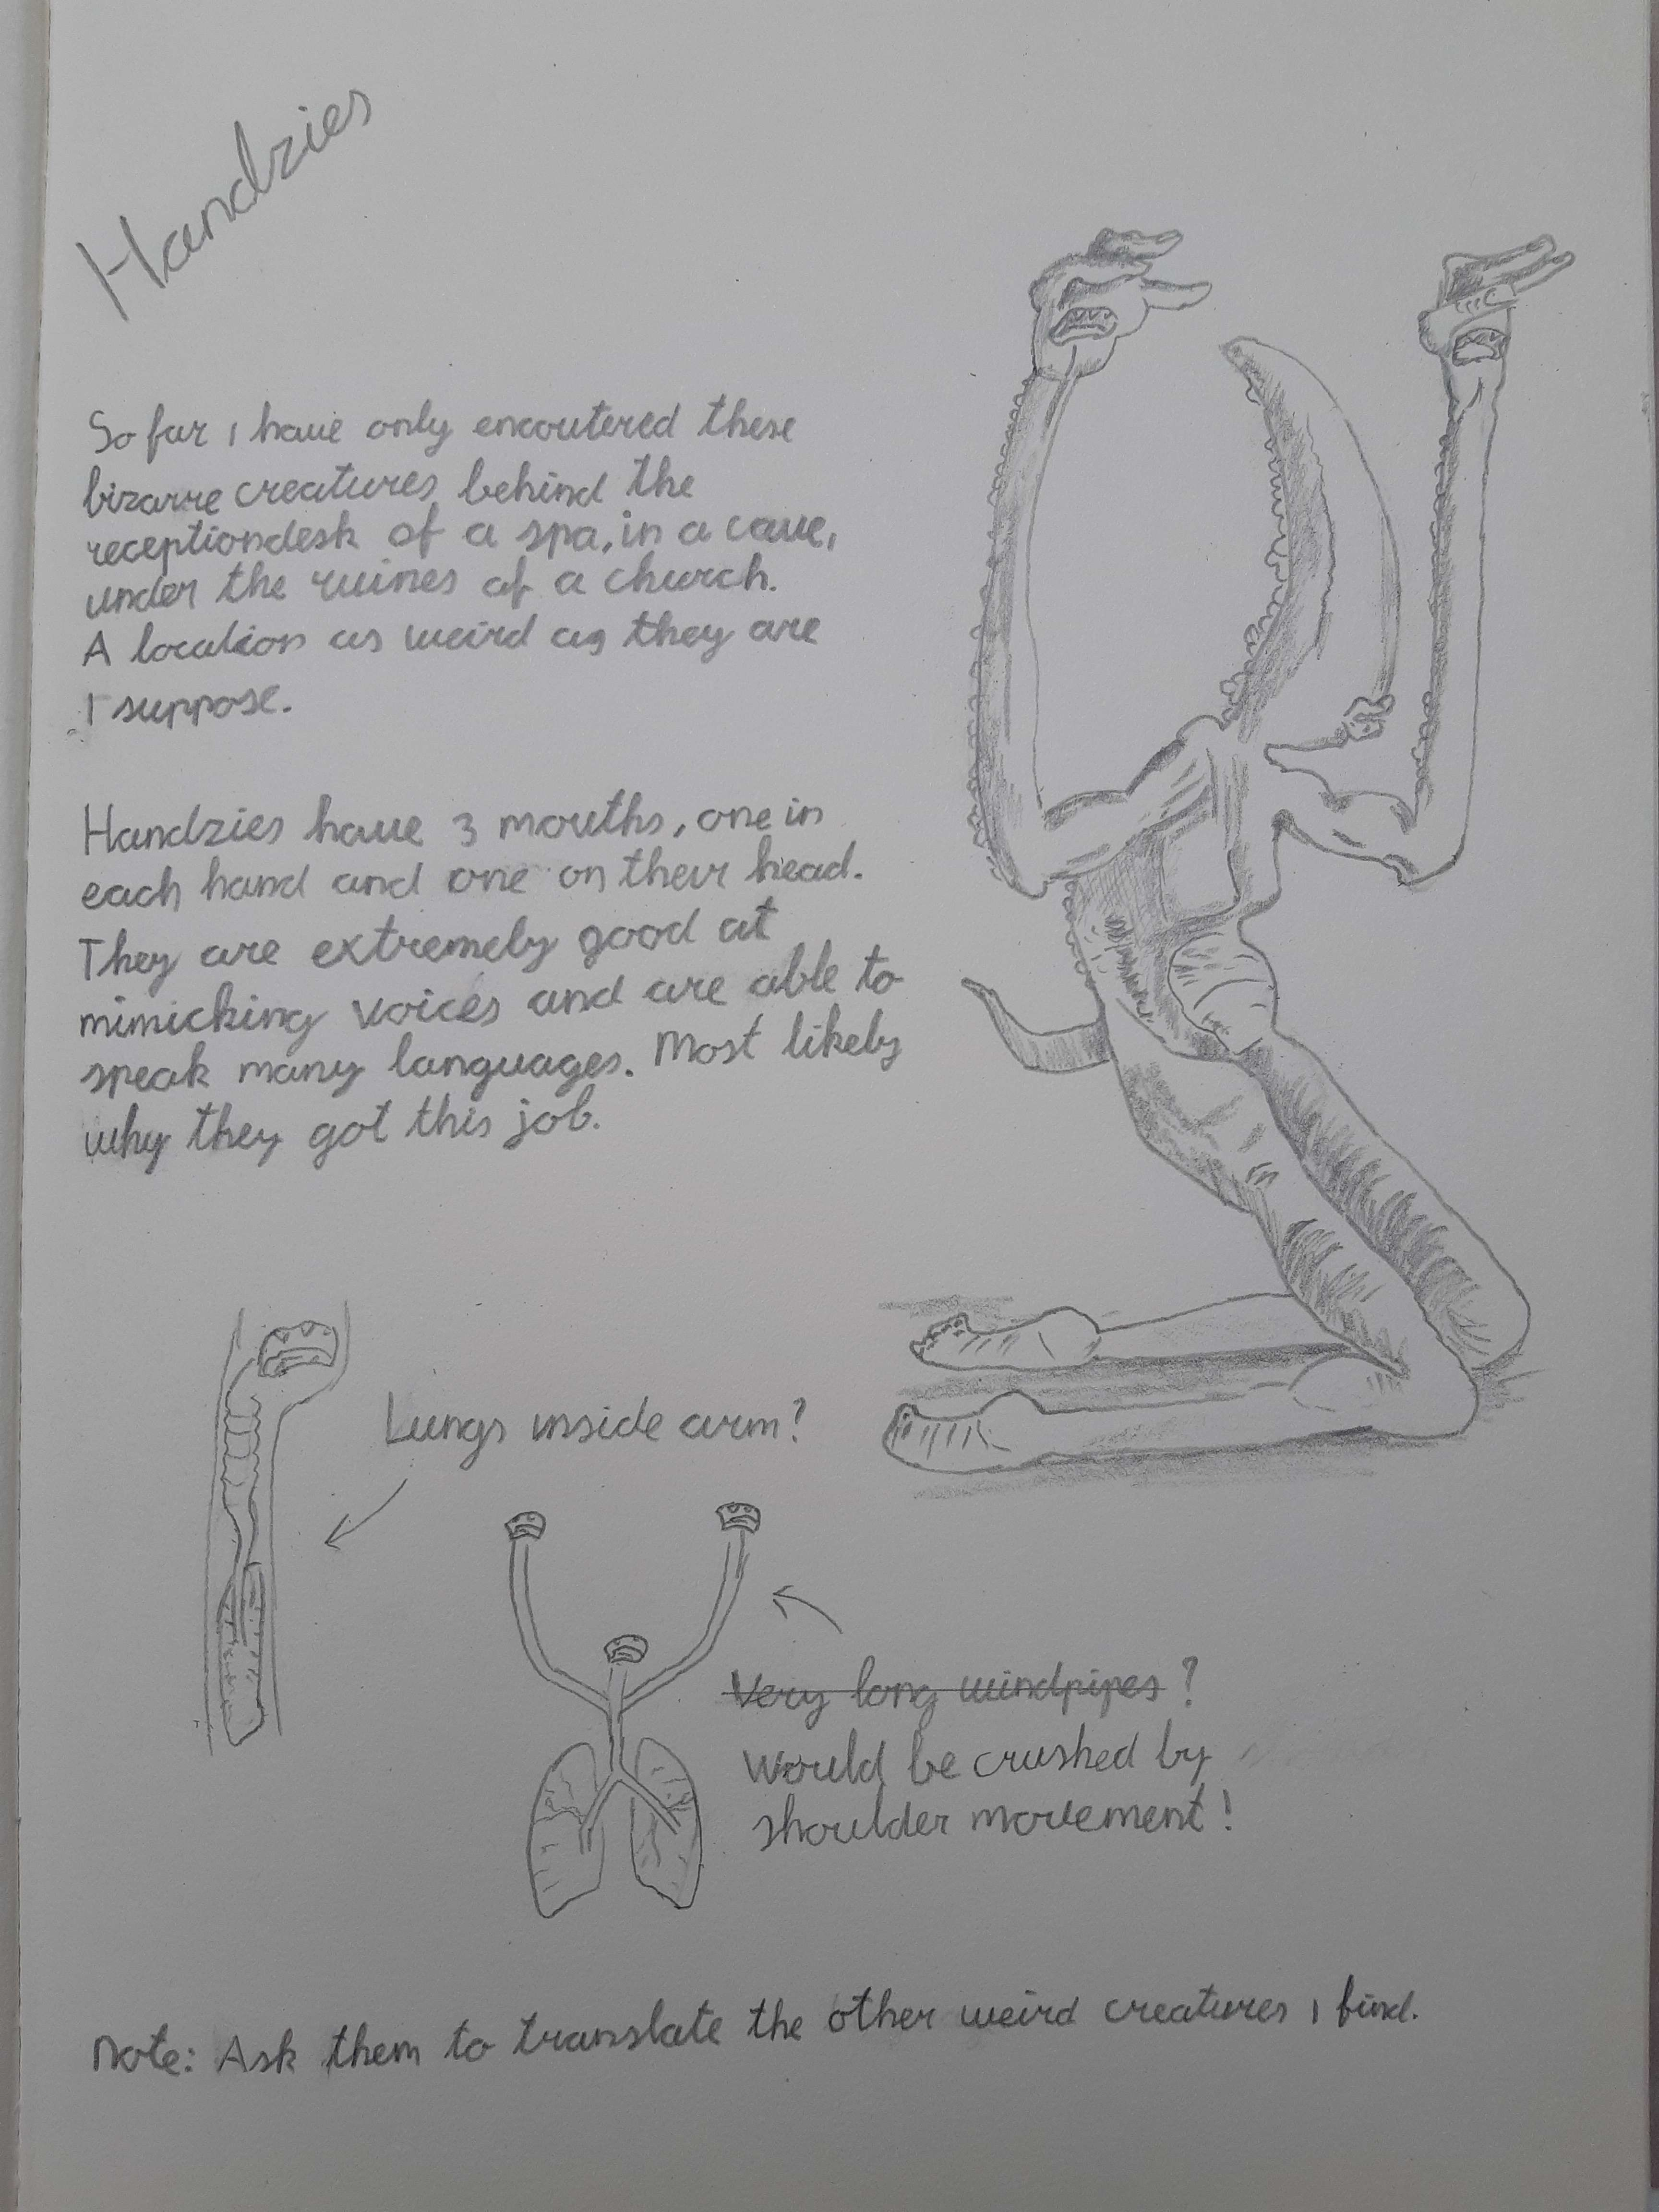 Handzies
So far I have only encoutered these
bizarre creatures behind the
receptiondesk of a spa, in a cave,
under the ruines of a church.
A location as weird as they are
I suppose.
Handzies have 3 mouths, one in
each hand and one on their head.
They are extremely good at
mimicking voices and are able to
speak many languages. Most likely
why they got this job.
Lungs inside arm?
Very long windpipes?
Would be crushed by
shoulder movement!
Note: Ask them to translate the other weird creatures I find.